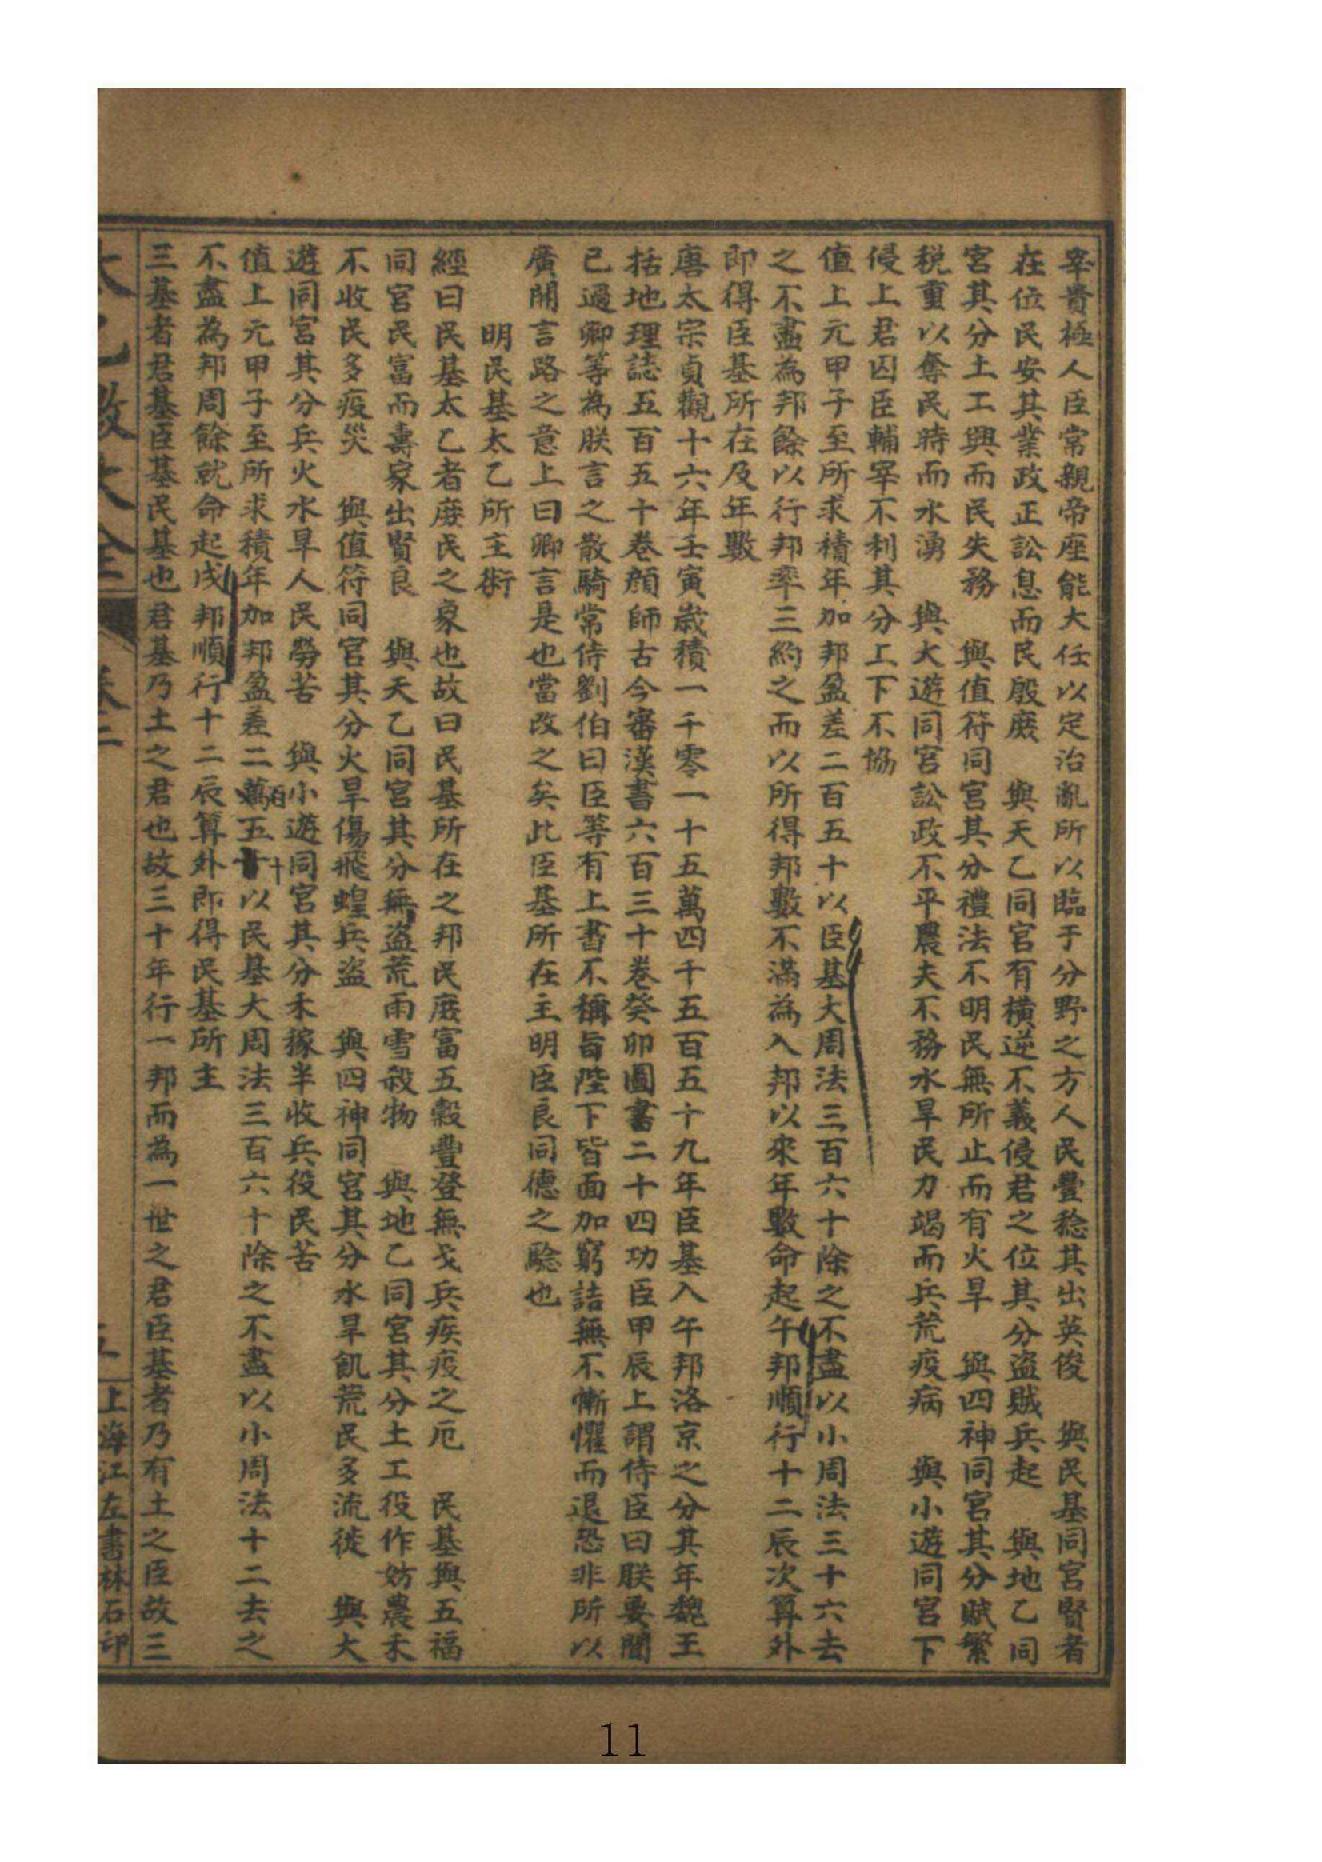 宰貴極人臣常親帝座能大任以定治亂所以臨于分野之方人民豐稔其出英俊　與民基同宮賢者
在位民安其業政正訟息而民殷庶　與天乙同宮有橫逆不義侵君之位其分盜賊兵起　與地乙同
宮其分土工興而民失務　與值符同宮其分禮法不明民無所止而有火旱　與四神同宮其分賦繁
稅重以奪民時而水湧　與大遊同宮訟政不平農夫不務水旱民力竭而兵荒疫病　與小遊同宮下
侵上君囚臣輔宰不利其分上下不協
值上元甲子至所求積年加邦盈差二百五十以臣基大周法三百六十除之不盡以小周法三十六去
之不盡為邦餘以行邦率三約之而以所得邦數不滿為入邦以來年數命起午邦順行十二辰次算外
即得臣基所在及年數
唐太宗貞觀十六年壬寅歲積一千零一十五萬四千五百五十九年臣基入午邦洛京之分其年魏王
括地理誌五百五十卷顏師古今審漢書六百三十卷癸卯圖書二十四功臣甲辰上謂侍臣曰朕要聞
已過卿等為朕言之散騎常侍劉伯曰臣等有上書不稱旨陛下皆面加窮詰無不慚懼而退恐非所以
廣開言路之意上曰卿言是也當改之矣此臣基所在主明臣良同德之驗也
明民基太乙所主術
經曰民基太乙者庶民之象也故曰民基所在之邦民庶富五穀豐登無戈兵疾疫之厄　民基與五福
同宮民富而壽家出賢良　與天乙同宮其分無盜荒雨雪殺物　與地乙同宮其分土工役作妨農禾
不收民多疫災　與值符同宮其分火旱傷飛蝗兵盜　與四神同宮其分水旱飢荒民多流徙　與大
遊同宮其分兵火水旱人民勞苦　與小遊同宮其分禾稼半收兵役民苦
值上元甲子至所求積年加邦盈差二萬百五十以民基大周法三百六十除之不盡以小周法十二去之
不盡為邦周餘就命起戌邦順行十二辰算外即得民基所主
三基者君基臣基民基也君基乃土之君也故三十年行一邦而為一世之君臣基者乃有土之臣故三
太乙數大全　卷二　五　上海江左書林石印
11